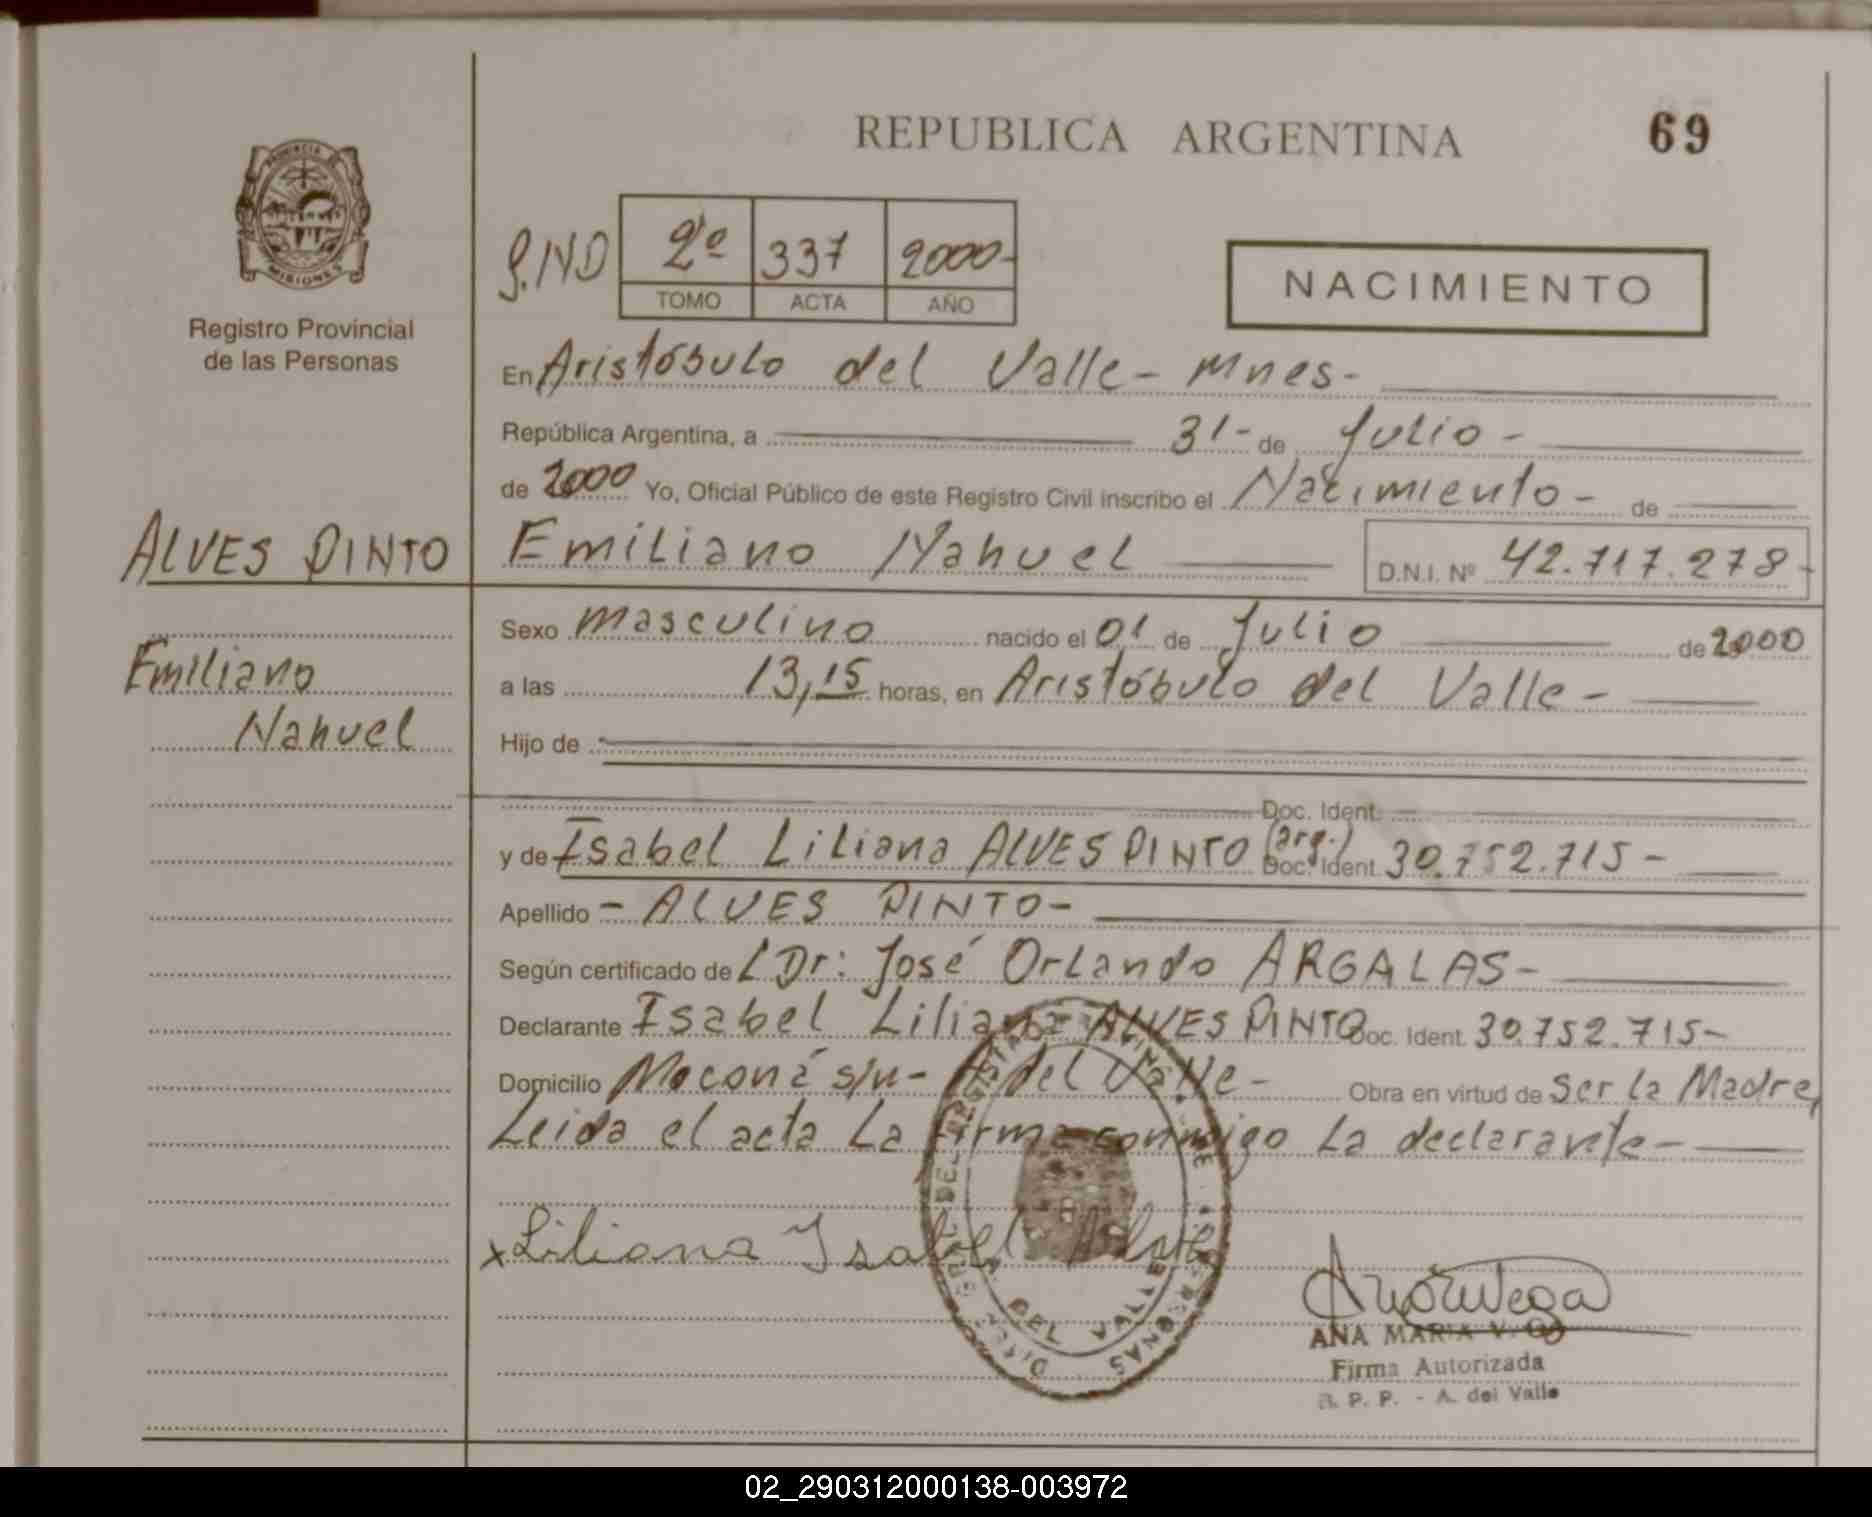 REPUBLICA ARGENTINA
69
PROVINCIA DE
MISIONES
Registro Provincial
de las Personas
2º 337 2000-
TOMO ACTA AÑO
NACIMIENTO
En Aristóbulo del Valle- Mnes-
República Argentina, a 31- de Julio-
de 2000 Yo, Oficial Público de este Registro Civil inscribo el Nacimiento- de
ALVES PINTO
Emiliano Nahuel D.N.I. Nº 42.717.278-
Emiliano
Nahuel
Sexo masculino nacido el 01 de Julio de 2000
a las 13,15 horas, en Aristóbulo del Valle-
Hijo de
Doc. Ident.
y de Isabel Liliana ALVES PINTO (arg.) Doc. Ident. 30.752.715-
Apellido - ALVES PINTO-
Según certificado de Dr: José Orlando ARGALAS-
Declarante Isabel Liliana ALVES PINTO Doc. Ident. 30.752.715-
Domicilio Moconá s/n- A. del Valle- Obra en virtud de Ser la Madre,
Leida el acta La firma conmigo La declarante-
x Liliana Isabel
DEL VALLE
ANA MARIA
Firma Autorizada
R. P. P. - A. del Valle
02_290312000138-003972